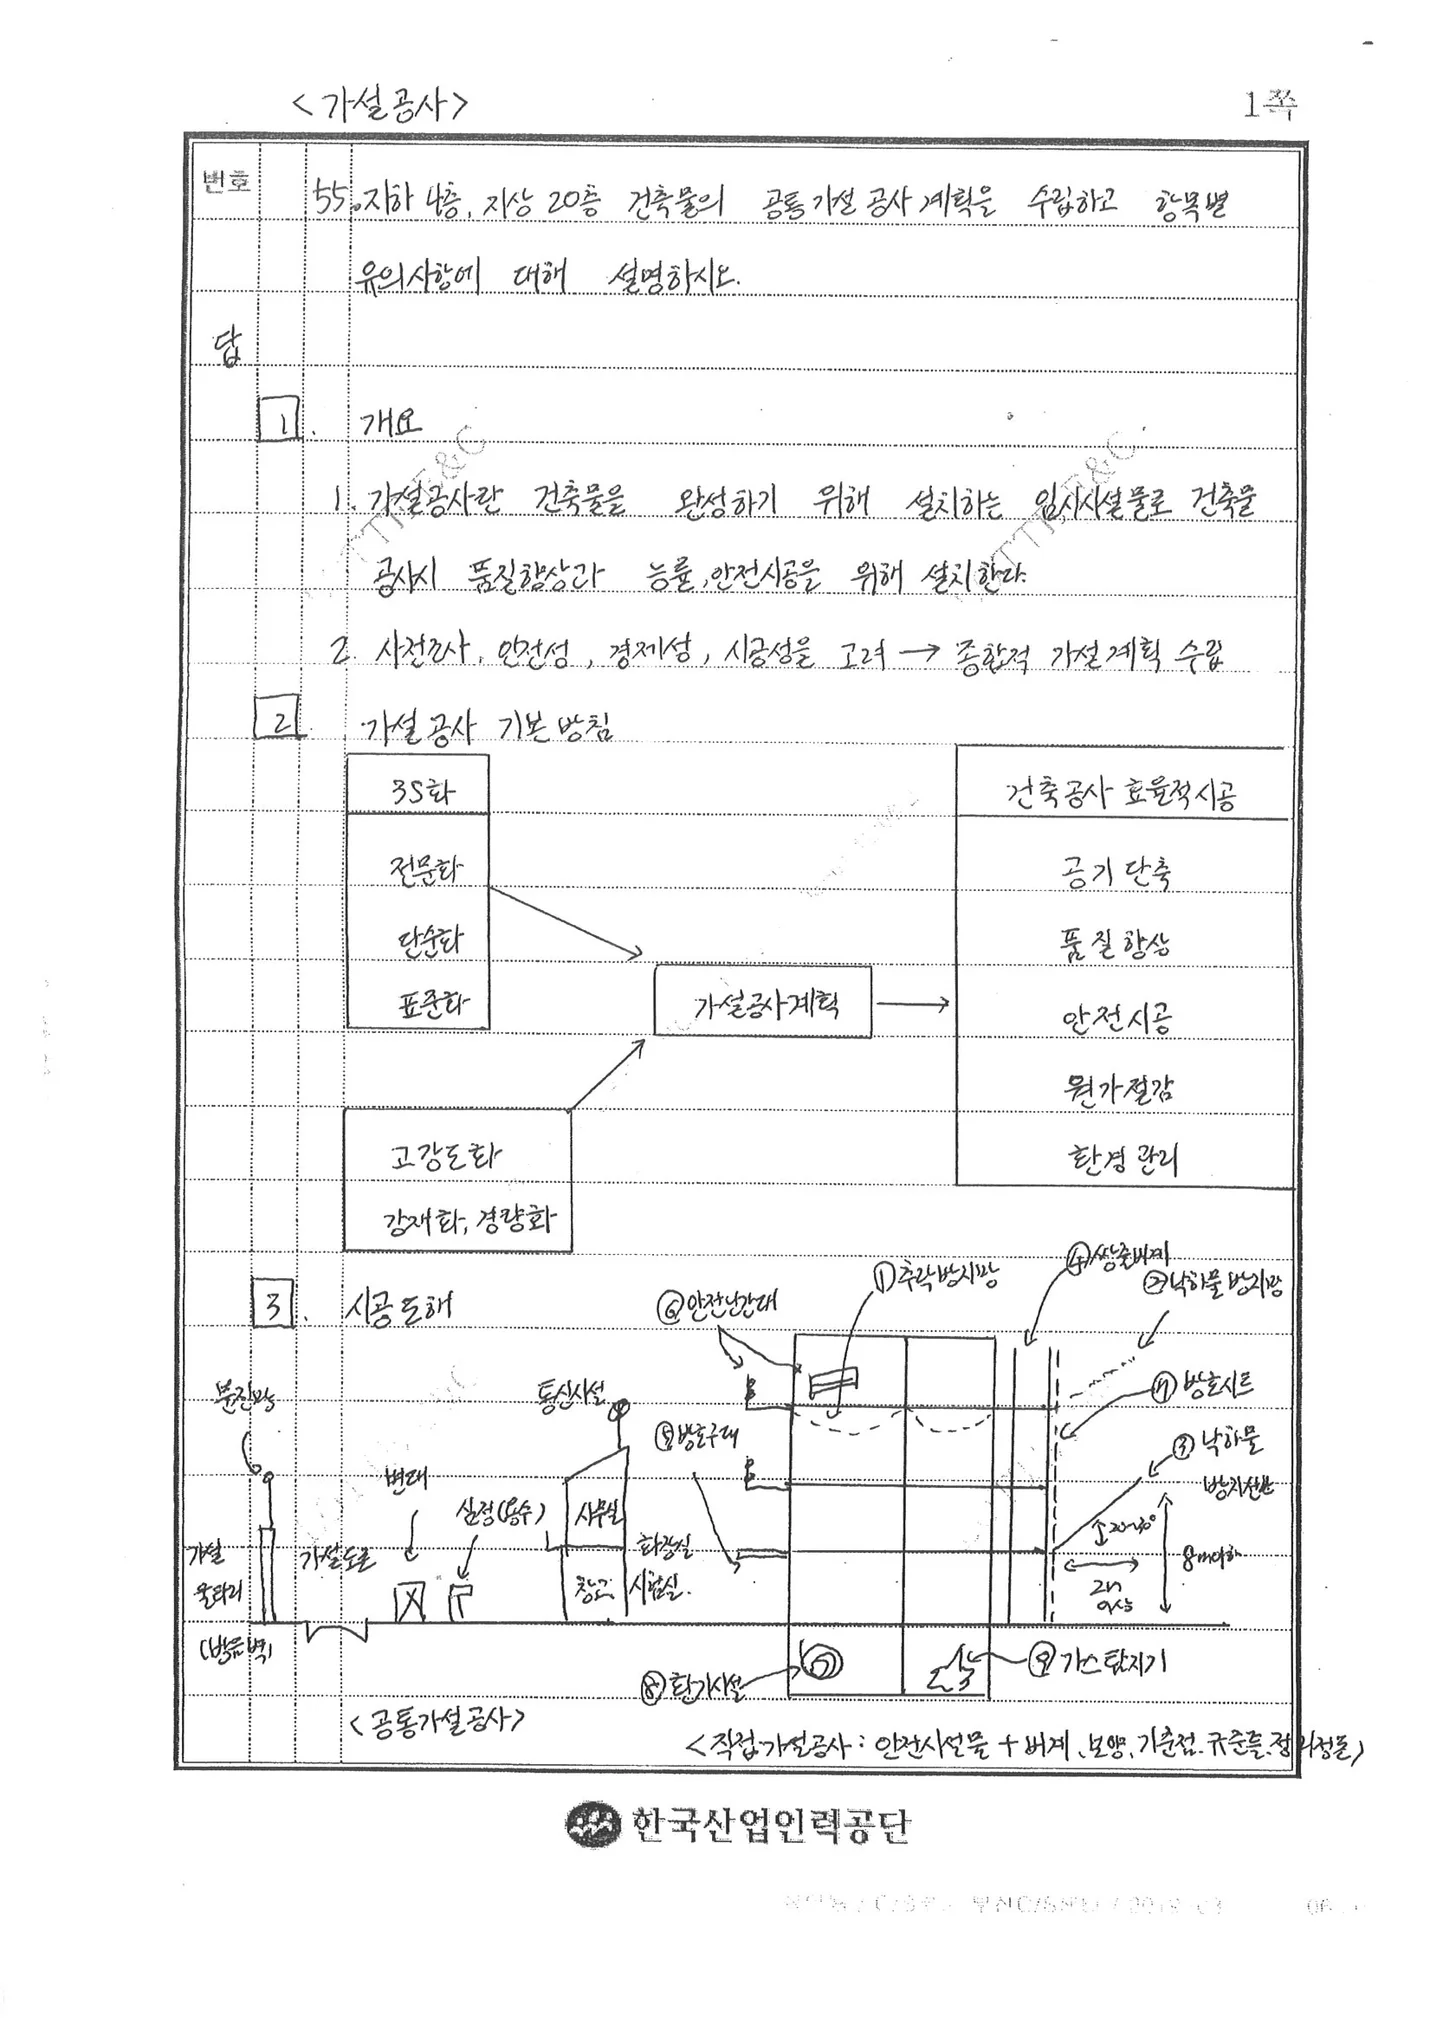 <가설공사>
1쪽
번호
55. 지하 4층, 지상 20층 건축물의 공통가설공사 계획을 수립하고 항목별
유의사항에 대해 설명하시오.
답
1. 개요
1. 가설공사란 건축물을 완성하기 위해 설치하는 임시시설물로 건축물
공사시 품질향상과 능률, 안전시공을 위해 설치한다.
2. 사전조사, 안전성, 경제성, 시공성을 고려 → 종합적 가설계획 수립
2. 가설공사 기본방침
3S화
전문화
단순화
표준화
고강도화
강재화, 경량화
가설공사계획
건축공사 효율적시공
공기단축
품질향상
안전시공
원가절감
환경관리
3. 시공도해
분진망
가설
울타리
(방음벽)
가설도로
변대
심정(용수)
통신시설
사무실
창고
화장실
시험실.
⑥안전난간대
①추락방지망
④쌍줄비계
②낙하물방지망
⑦방호시트
⑤방호구대
③낙하물
방지선반
20~30°
2m
이상
8m이하
⑧환기시설
⑨가스탐지기
<공통가설공사>
<직접가설공사: 안전시설물 + 비계, 보양, 기준점, 규준틀,
한국산업인력공단